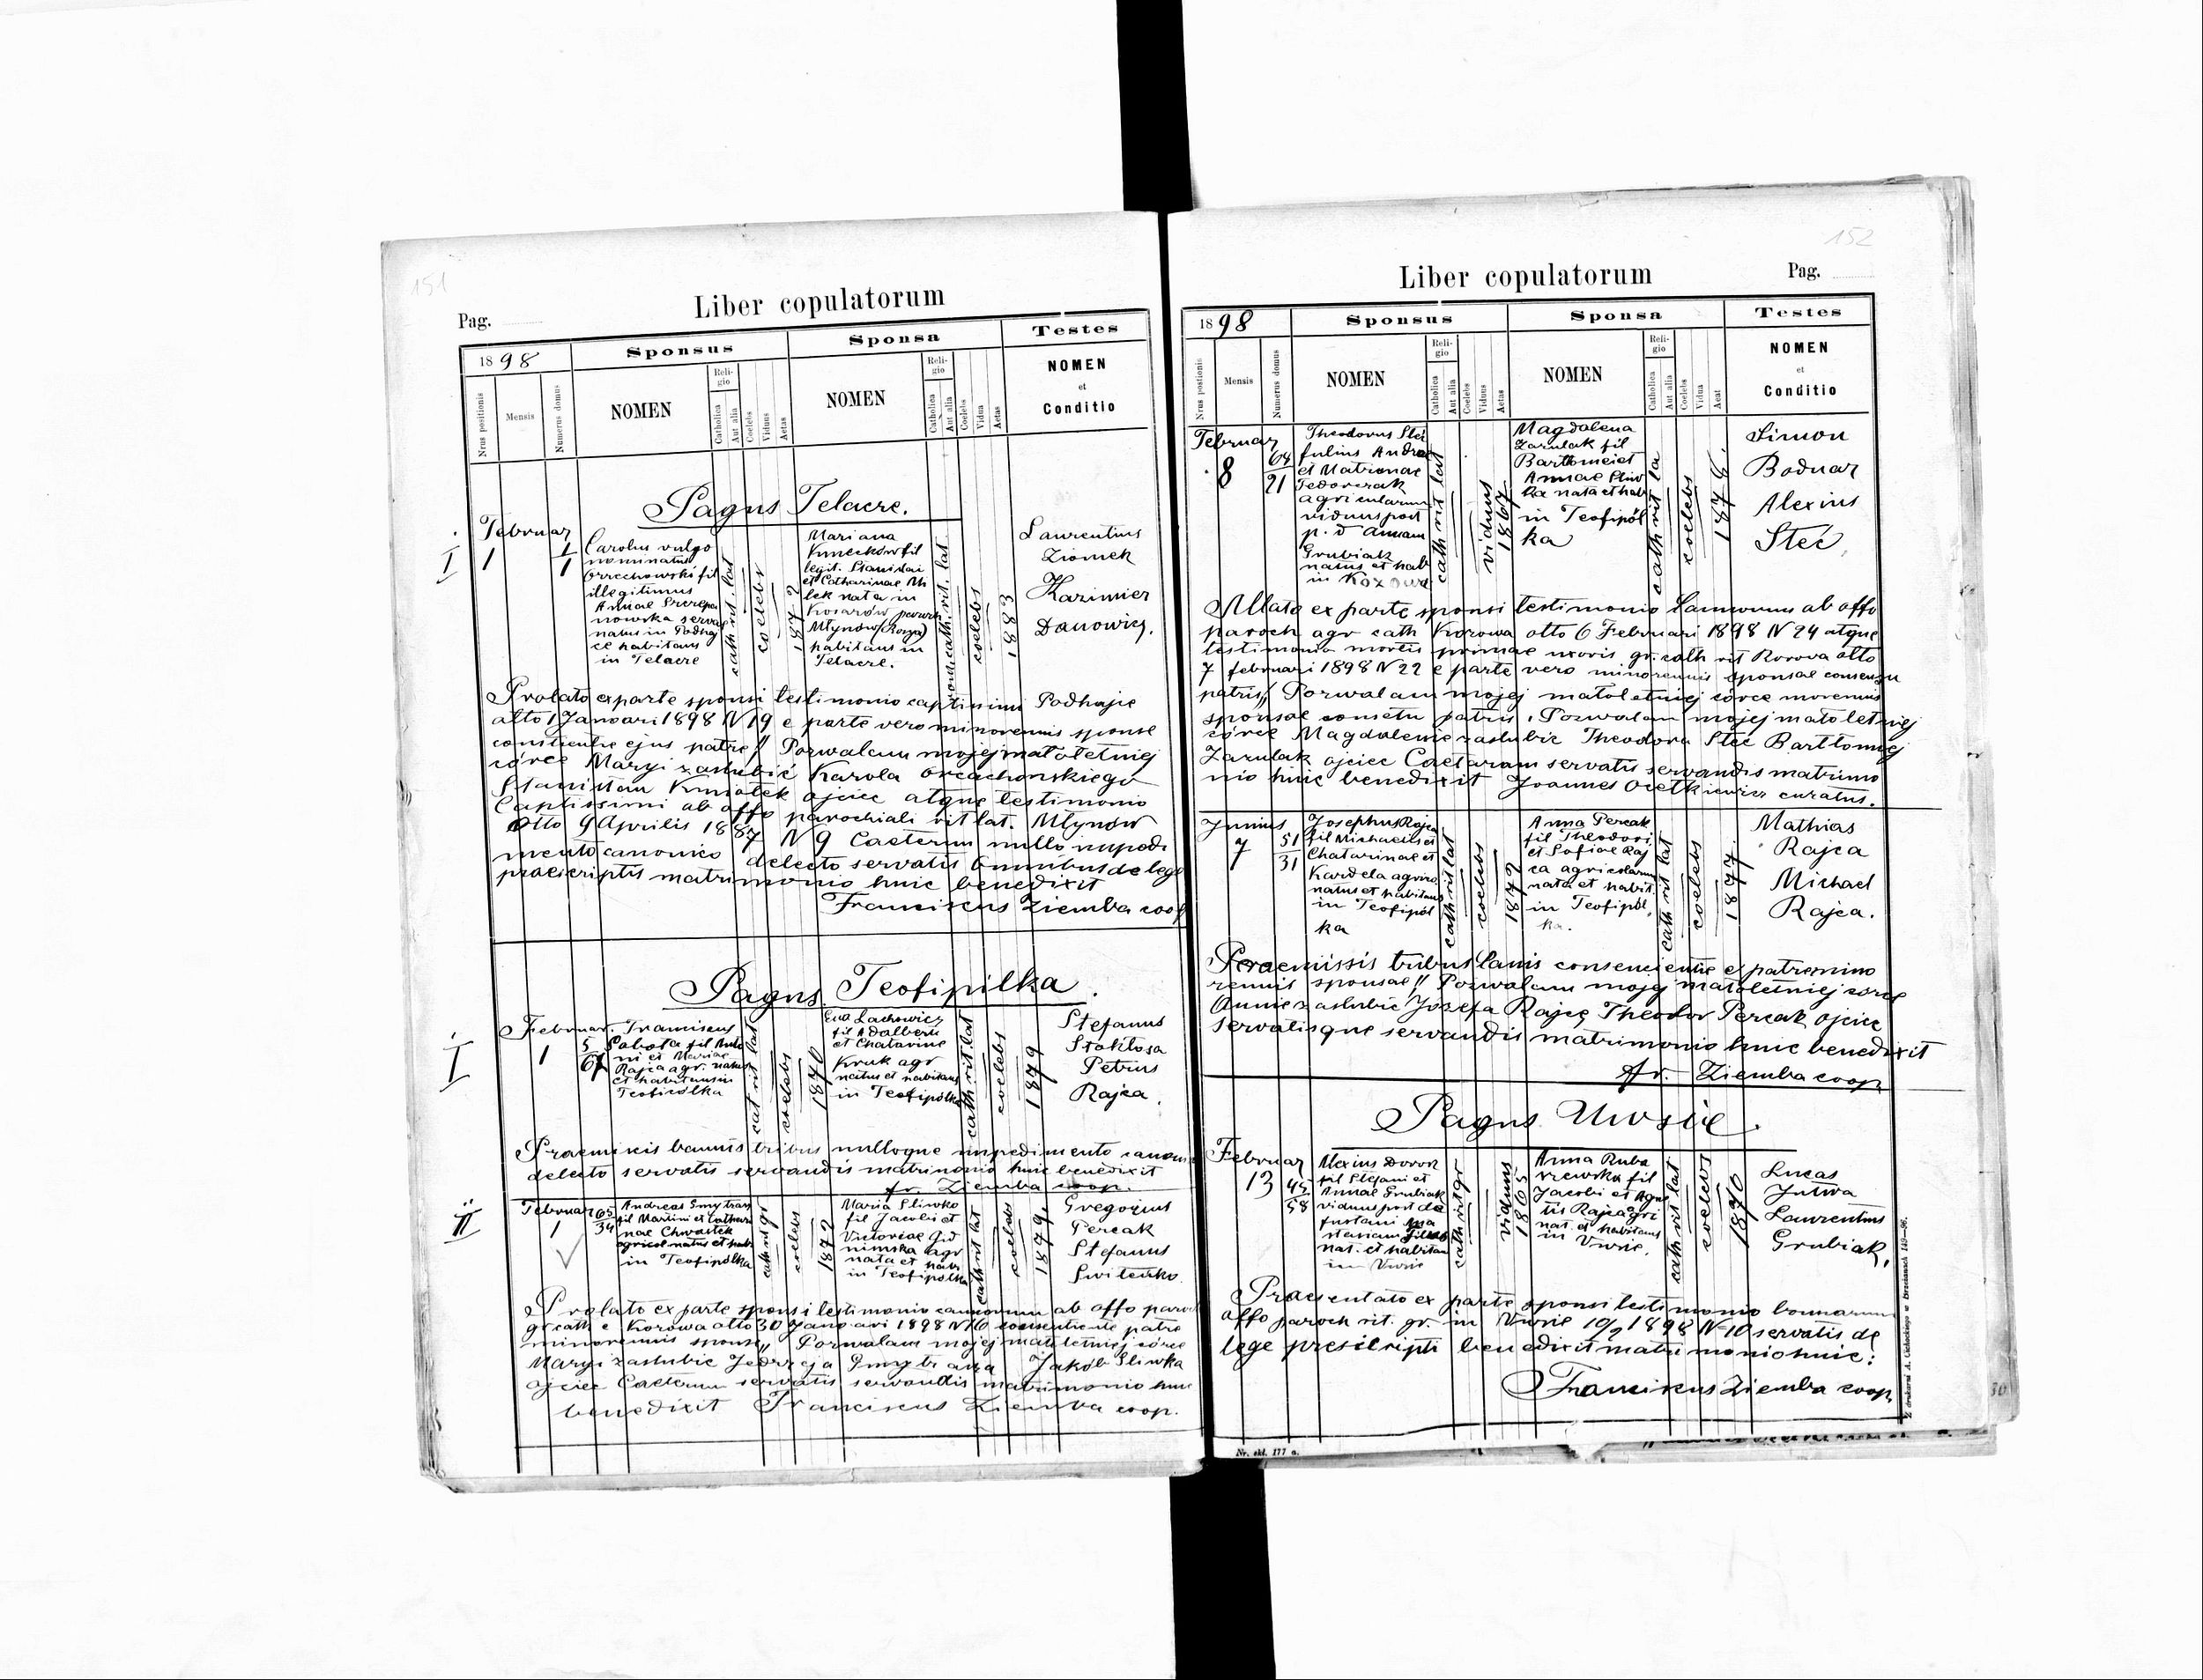 151
Liber copulatorum
Pag.
1898
Sponsus
Sponsa
Testes
Nrus positionis
Mensis
Numerus domus
NOMEN
Religio
Catholica
Aut alia
Coelebs
Viduus
Aetas
NOMEN
Religio
Catholica
Aut alia
Coelebs
Vidua
Aetas
NOMEN
et
Conditio
Pagus Telacze.
I
Februar
1
1
1
Carolus vulgo
nominatus
Orzechowski fil
illegitimus
Annae
nowska
natus in
ce habitans
in Telacze
cath. rit. lat
coelebs
1872
Mariana
fil
legit. Stanislai
et Catharinae
lek nata in
Kosarów
Młynów
habitans in
Telacze.
cath. rit. lat
coelebs
1883
Laurentius
Ziomek
Kazimier
Danowicz.
Prolato ex parte sponsi testimonio Podhajce
Januari 1898 N 19 e parte vero minorennis sponse
ejus patre // Pozwalam mojej małoletniej
córce Maryi zaslubić Karola
Stanisław ojciec atque testimonio
ab offo parochiali rit lat. Młynów
otto 9 Aprilis 1887 N 9 Caeterum nullo
mento canonico delecto servatis omnibus de lege
praescriptis matrimonio huic benedixit
Franciscus Ziemba coop
Pagus Teofipilka.
I
Februar.
1
5
67
Franciscus
Sobota fil
ni et Mariae
Rajca agr. natus
et habitans in
Teofipólka
cat rit lat
coelebs
1870
Eva Lachowicz
fil Adalberti
et Chatarine
Kruk agr
natus et habitans
in Teofipólka
cath rit lat
coelebs
1879
Stefanus
Stokłosa
Petrus
Rajca.
Praemissis bannis tribus nulloque impedimento canon
delecto servatis servandis matrimonio huic benedixit
Fr. Ziemba coop.
II
Februar
1
65
34
Andreas Smytran
fil Martini et Cathari
nae Chwastek
agricol natus et hab.
in Teofipólka
cath rit gr
coelebs
1872
Maria Sliwko
fil Jacobi et
Victoriae
agr
nata et hab.
in Teofipolka
cath rit lat
coelebs
1879.
Gregorius
Percak
Stefanus
Switenko.
Prolato ex parte sponsi testimonio ab offo paroch
gr cath e Korowa otto 30 Januari 1898 N 16 consentiente patre
minorennis sponse // Pozwalam mojej małoletniej córce
Maryi zaslubic Jędrzeja Jakób Sliwka
ojciec Caeterum servatis servandis matrimonio huic
benedixit Franciscus Ziemba coop.
152
Liber copulatorum
Pag.
1898
Sponsus
Sponsa
Testes
Nrus positionis
Mensis
Numerus domus
NOMEN
Religio
Catholica
Aut alia
Coelebs
Viduus
Aetas
NOMEN
Religio
Catholica
Aut alia
Coelebs
Vidua
Aeat
NOMEN
et
Conditio
Februar
8
64
21
Theodorus Steć
filius Andreae
et Matronae
Fedorczak
agricolarum
viduus post
p. d Annam
Grubiak
natus et hab
in
cath rit lat
viduus
1867
Magdalena
Zarulak fil
Bartlomei et
Annae Sliw
ka nata et hab
in Teofipól
ka
cath rit la
coelebs
1876
Simon
Bodnar
Alexius
Steć,
Allato ex parte sponsi testimonio ab offo
paroch agr cath Korowa otto 6 Februari 1898 N 24 atque
testimonio mortis primae uxoris gr. cath rit Korova otto
7 februari 1898 N 22 e parte vero minorennis sponsae consensu
patris // Pozwalam mojej małoletniej córce
sponsae patris, Pozwalam mojej małoletniej
córce Magdalenie zaslubic Theodora Steć Bartłomiej
Zarulak ojciec Caeterum servatis servandis matrimo
nio huic benedixit Joannes curatus.
Junius
7
51
31
Josephus Rajca
fil Michaelis et
Chatarinae et
Kardela agrico
natus et habitans
in Teofipól
ka
cath rit lat
coelebs
1872
Anna Percak
fil Theodori
et Sofiae Raj
ca agricolarum
nata et habit.
in Teofipól
ka.
cath rit lat
coelebs
1877.
Mathias
Rajca
Michael
Rajca.
Praemissis tribus bannis consenciente e patre mino
rennis sponsae // Pozwalam mojej małoletniej córce
Annie zaslubić Józefa Rajcę Theodor Percak ojciec
servatisque servandis matrimonio huic benedixit
Fr. Ziemba coop
Pagus Uwsie.
Februar
13
45
58
Alexius
fil Stefani et
Annae Grubiak
viduus post de
functam
nat. et habitan
in Uwsie
cath rit gr
viduus
1865
Anna Ruba
szewska fil
Jacobi et Agne
tis Rajca agri
nat. et habitans
in Uwsie,
cath rit lat
coelebs
1870
Lucas
Laurentius
Grubiak,
Praesentato ex parte sponsi testimonio bannorum
offo paroch rit. gr. in Uwsie 10/2 1898 N 10 servatis de
lege benedixit matrimonio huic:
Franciscus Ziemba coop
Nr. skł. 177 a.